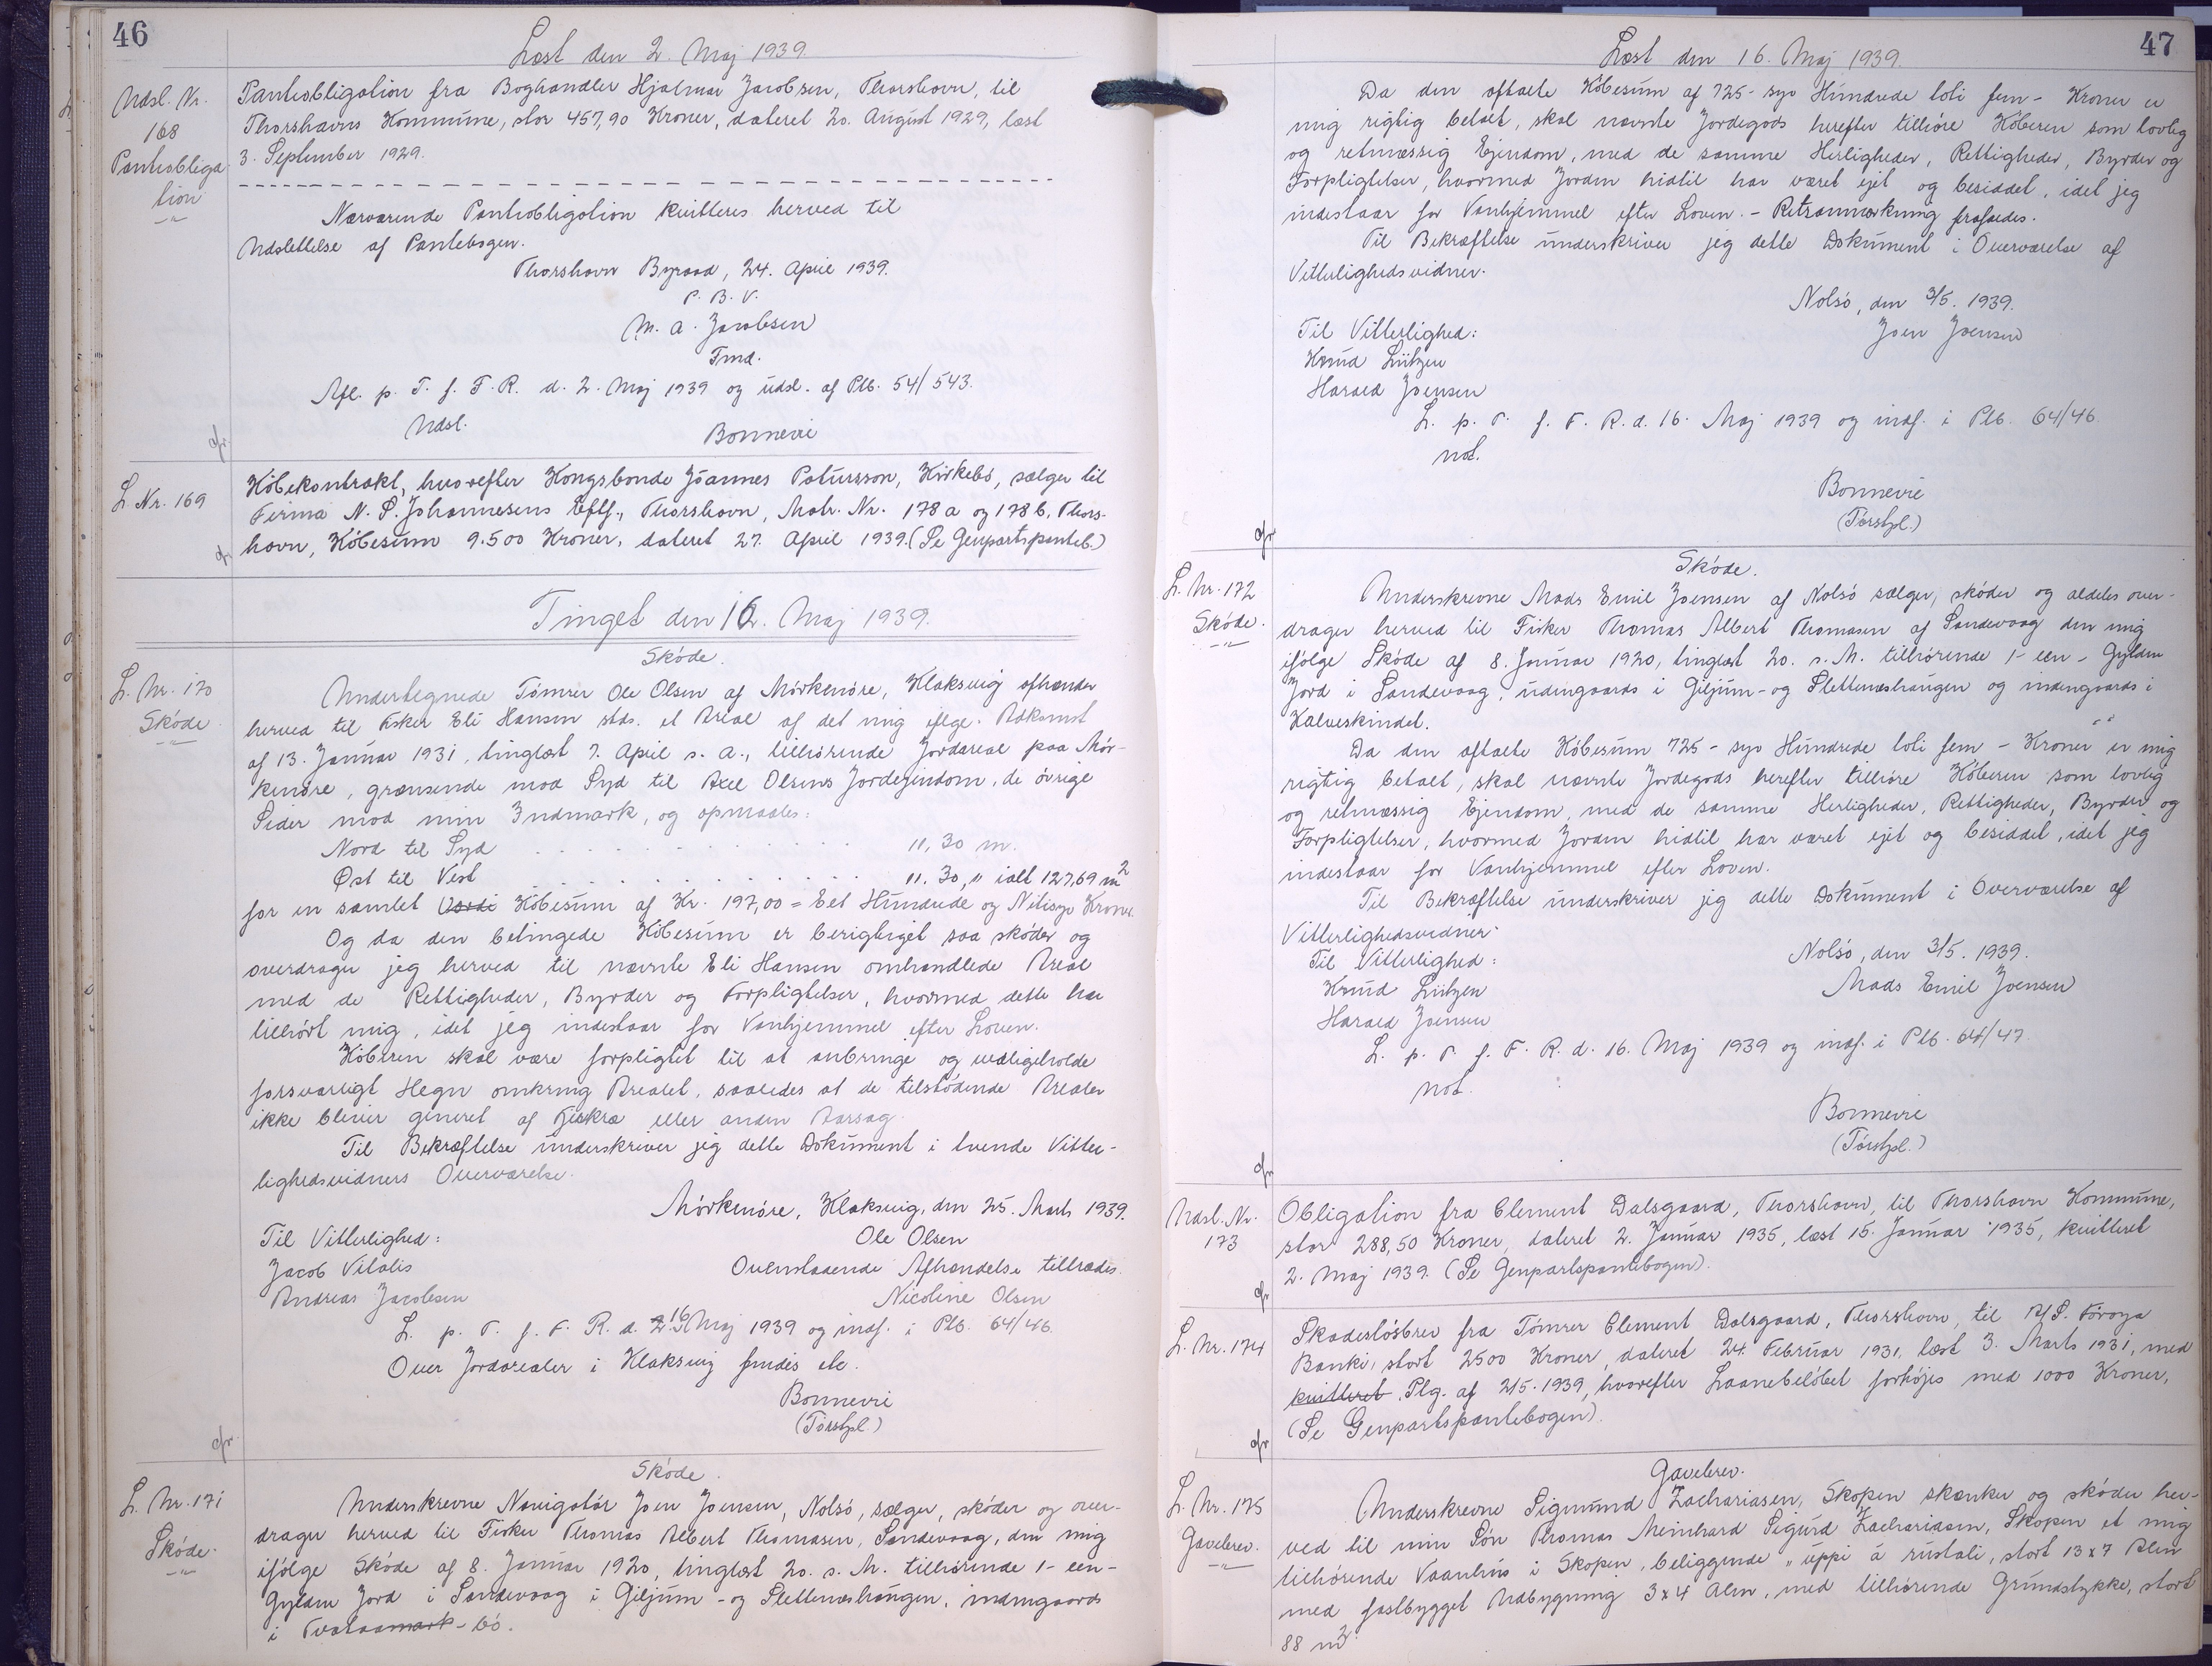 46
Læst den 2. Maj 1939.
Udsl. Nr.
168
Panteobliga
tion
Panteobligation fra Boghandler Hjalmar Jacobsen, Thorshavn, til
Thorshavns Kommune, stor 457,90 Kroner, dateret 20. August 1929, læst
3. September 1929.
Nærværende Panteobligation kvitteres herved til
Udslettelse af Pantebogen.
Thorshavn Byraad, 24. April 1939.
P. B. V.
M. A. Jacobsen
Fmd.
Afl. p. T. f. F. R. d. 2. Maj 1939 og udsl. af Ptb. 54/543.
Udsl.
Bonnevie
L Nr. 169
Köbekontrakt, hvorefter Kongsbonde Jóannes Patursson, Kirkebö, sælger til
Firma N. P. Johannesens Eftf., Thorshavn, Matr. Nr. 178 a og 178 b, Thors-
havn, Köbesum 9.500 Kroner, dateret 27. April 1939. (Se Genpartspanteb.)
Tinget den 16. Maj 1939.
L. Nr. 170
Sköde
Sköde.
Undertegnede Tömrer Ole Olsen af Mörkenöre, Klaksvig afhænder
herved til Fisker Eli Hansen stds. et Areal af det mig iflge. Adkomst
af 13. Januar 1931, tinglæst 7. April s. A., tilhörende Jordareal paa Mör-
kenöre, grænsende mod Syd til Axel Olsens Jordejendom, de övrige
Sider mod min Indmark, og opmaales:
Nord til Syd . . . . . . . . . . 11,30 m.
Øst til Vest . . . . . . . . . . 11,30 " ialt 127,69 m2
for en samlet Værdi Köbesum af Kr. 197,00 = Eet Hundrede og Nitisyv Kroner.
Og da den betingede Köbesum er berigtiget saa sköder og
overdrager jeg herved til nævnte Eli Hansen omhandlede Areal
med de Rettigheder, Byrder og Forpligtelser, hvormed dette har
tilhört mig, idet jeg indestaar for Vanhjemmel efter Loven.
Köberen skal være forpligtet til at anbringe og vedligeholde
forsvarligt Hegn omkring Arealet, saaledes at de tilstödende Arealer
ikke bliver generet af Fjerkræ eller anden Aarsag.
Til Bekræftelse underskriver jeg dette Dokument i tvende Vitter-
lighedsvidners Overværelse.
Mörkenöre, Klaksvig, den 25. Marts 1939.
Til Vitterlighed:
Ole Olsen
Jacob Vitalis
Ovenstaaende Afhændelse tiltrædes.
Andreas Jacobsen
Nicoline Olsen
L. p. T. f. F. R. d. 2. 16 Maj 1939 og indf. i Ptb. 64/46.
Over Jordarealer i Klaksvig findes etc.
Bonnevie
L. Nr. 171
Sköde.
Sköde.
Underskrevne Navigatör Joen Joensen, Nolsö, sælger, sköder og over-
drager herved til Fisker Thomas Albert Thomasen, Sandevaag, den mig
ifölge Sköde af 8. Januar 1920, tinglæst 20. s. M. tilhörende 1- een-
Gylden Jord i Sandevaag i Giljum- og Slettenæshaugen, indengaards
i Tvøraamark - bö.
47
Læst den 16. Maj 1939.
Da den aftalte Köbesum af 725- syv Hundrede toti fem - Kroner er
mig rigtig betalt, skal nævnte Jordegods herefter tilhöre Köberen som lovlig
og retmæssig Ejendom, med de samme Herligheder, Rettigheder, Byrder og
Forpligtelser, hvormed Jorden hidtil har været ejet og besiddet, idet jeg
indestaar for Vanhjemmel efter Loven. - Retsanmærkning frafaldes.
Til Bekræftelse underskriver jeg dette Dokument i Overværelse af
Vitterlighedsvidner.
Nolsö, den 3/5. 1939.
Til Vitterlighed:
Joen Joensen
Knud Lützen
Harald Joensen
L. p. T. f. F. R. d. 16. Maj 1939 og indf. i Ptb. 64/46
not.
Bonnevie
L. Nr. 172
Sköde.
Sköde.
Underskrevne Mads Emil Joensen af Nolsö sælger, sköder og aldeles over-
drager herved til Fisker Thomas Albert Thomasen af Sandevaag den mig
ifölge Sköde af 8. Januar 1920, tinglæst 20. s. M. tilhörende 1- een - Gylden
Jord i Sandevaag, udengaards i Giljum- og Slettenæshaugen og indengaards i
Kalveskindet.
Da den aftalte Köbesum 725 - syv Hundrede toti fem - Kroner er mig
rigtig betalt, skal nævnte Jordegods herefter tilhöre Köberen som lovlig
og retmæssig Ejendom, med de samme Herligheder, Rettigheder, Byrder og
Forpligtelser, hvormed Jorden hidtil har været ejet og besiddet, idet jeg
indestaar for Vanhjemmel efter Loven.
Til Bekræftelse underskriver jeg dette Dokument i Overværelse af
Vitterlighedsvidner.
Til Vitterlighed:
Nolsö, den 3/5. 1939.
Knud Lützen
Mads Emil Joensen
Harald Joensen
L. p. T. f. F. R. d. 16. Maj 1939 og indf. i Ptb. 64/47
not.
Bonnevie
Udsl. Nr.
173
Obligation fra Clement Dalsgaard, Thorshavn, til Thorshavn Kommune,
stor 288,50 Kroner, dateret 2. Januar 1935, læst 15. Januar 1935, kvitteret
2. Maj 1939. (Se Genpartspantebogen).
L. Nr. 174
Skadeslösbrev fra Tömrer Clement Dalsgaard, Thorshavn, til A/S. Föroya
Banki, stort 2500 Kroner, dateret 24. Februar 1931, læst 3. Marts 1931, med
kvitteret Ptg. af 2/5. 1939, hvorefter Laanebelöbet forhöjes med 1000 Kroner,
(Se Genpartspantebogen).
L. Nr. 175
Gavebrev.
Gavebrev.
Underskrevne Sigmund Zachariasen, Skopen skænker og sköder her-
ved til min Sön Thomas Meinhard Sigurd Zachariasen, Skopen et mig
tilhörende Vaanhus i Skopen, beliggende " uppi á rustali, stort 13 x 7 Alen
med fastbygget Udbygning 3 x 4 Alen, med tilhörende Grundstykke, stort
88 m2.